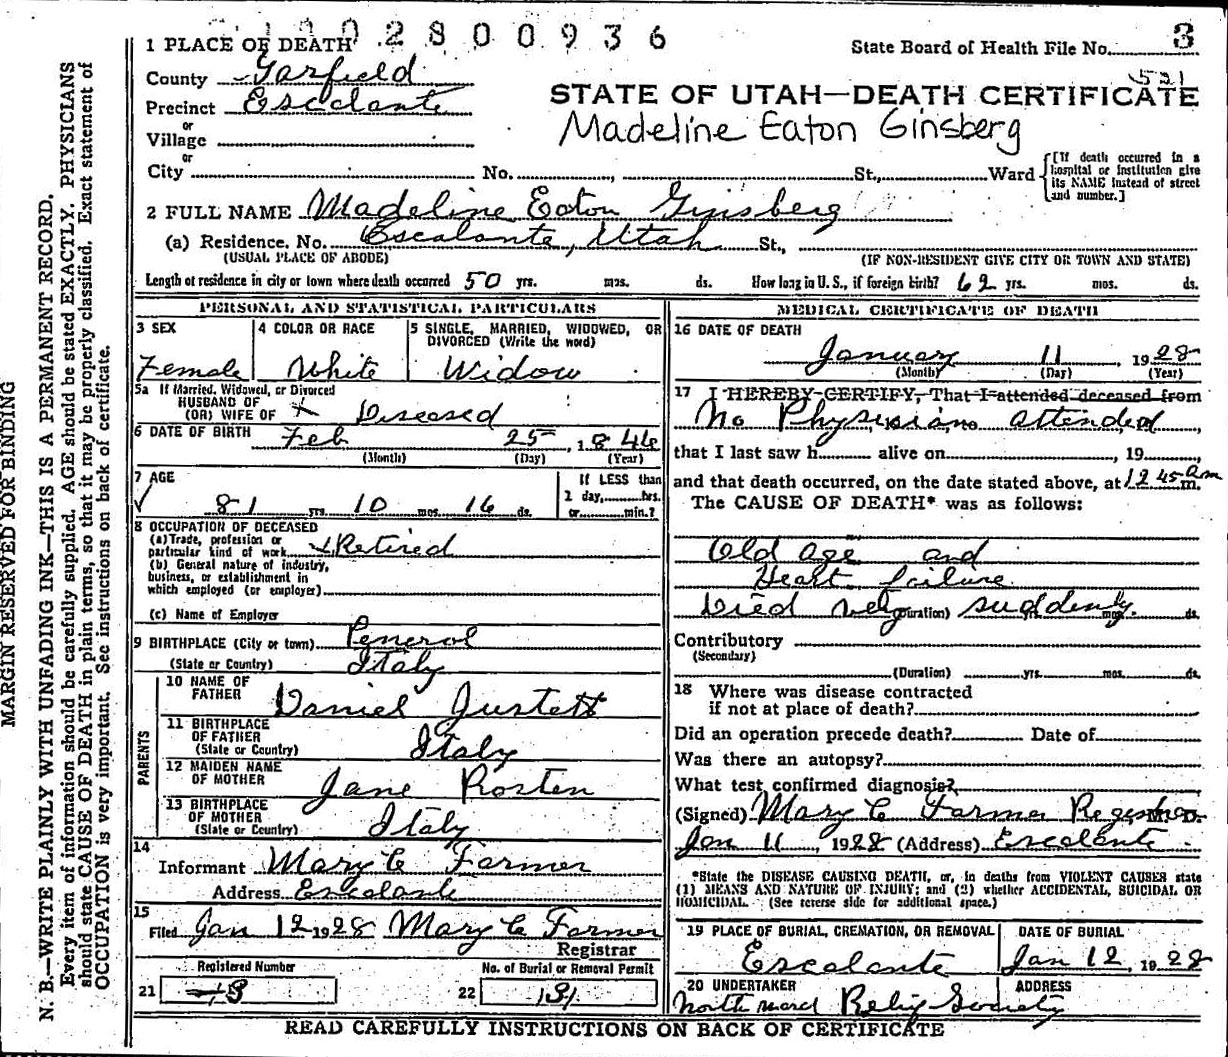 1 1 0 2 8 0 0 9 3 6
1 PLACE OF DEATH
State Board of Health File No. 3
County Garfield
531
Precinct Escalante
STATE OF UTAH—DEATH CERTIFICATE
or
Village
Madeline Eaton Ginsberg
or
City No. , St., Ward
[If death occurred in a
hospital or institution give
its NAME instead of street
and number.]
2 FULL NAME Madeline Eaton Ginsberg
(a) Residence. No. Escalante, Utah St.,
(USUAL PLACE OF ABODE) (IF NON-RESIDENT GIVE CITY OR TOWN AND STATE)
Length of residence in city or town where death occurred 50 yrs. mos. ds. How long in U. S., if foreign birth? 62 yrs. mos. ds.
PERSONAL AND STATISTICAL PARTICULARS
3 SEX
Female
4 COLOR OR RACE
White
5 SINGLE, MARRIED, WIDOWED, OR
DIVORCED (Write the word)
Widow
5a If Married, Widowed, or Divorced
HUSBAND OF
(OR) WIFE OF x Diseased
6 DATE OF BIRTH Feb 25 1846
(Month) (Day) (Year)
7 AGE
81 yrs. 10 mos. 16 ds.
If LESS than
1 day, hrs.
or min.?
8 OCCUPATION OF DECEASED
(a) Trade, profession or
particular kind of work Retired
(b) General nature of industry,
business, or establishment in
which employed (or employer)
(c) Name of Employer
9 BIRTHPLACE (City or town) Penerol
(State or Country) Italy
PARENTS
10 NAME OF
FATHER Daniel Justett
11 BIRTHPLACE
OF FATHER
(State or Country) Italy
12 MAIDEN NAME
OF MOTHER Jane Rosten
13 BIRTHPLACE
OF MOTHER
(State or Country) Italy
14
Informant Mary C Farmer
Address Escalante
15
Filed Jan 12 1928 Mary C Farmer
Registrar
Registered Number
21
No. of Burial or Removal Permit
22 131
MEDICAL CERTIFICATE OF DEATH
16 DATE OF DEATH
January 11 1928
(Month) (Day) (Year)
17 I HEREBY CERTIFY, That I attended deceased from
No Physisian attended
that I last saw h alive on , 19 ,
and that death occurred, on the date stated above, at 12 45 am m.
The CAUSE OF DEATH* was as follows:
Old age and
Heart failure
Died very (duration) suddenly. mos. ds.
Contributory
(Secondary)
(Duration) yrs. mos. ds.
18 Where was disease contracted
if not at place of death?
Did an operation precede death? Date of
Was there an autopsy?
What test confirmed diagnosis?
(Signed) Mary C Farmer Registrar M. D.
Jan 11, 1928 (Address) Escalante
*State the DISEASE CAUSING DEATH, or, in deaths from VIOLENT CAUSES state
(1) MEANS AND NATURE OF INJURY; and (2) whether ACCIDENTAL, SUICIDAL OR
HOMICIDAL. (See reverse side for additional space.)
19 PLACE OF BURIAL, CREMATION, OR REMOVAL
Escalante
DATE OF BURIAL
Jan 12, 1928
20 UNDERTAKER
North Ward Relif Society
ADDRESS
READ CAREFULLY INSTRUCTIONS ON BACK OF CERTIFICATE
MARGIN RESERVED FOR BINDING
N. B.—WRITE PLAINLY WITH UNFADING INK—THIS IS A PERMANENT RECORD.
Every item of information should be carefully supplied. AGE should be stated EXACTLY. PHYSICIANS
should state CAUSE OF DEATH in plain terms, so that it may be properly classified. Exact statement of
OCCUPATION is very important. See instructions on back of certificate.